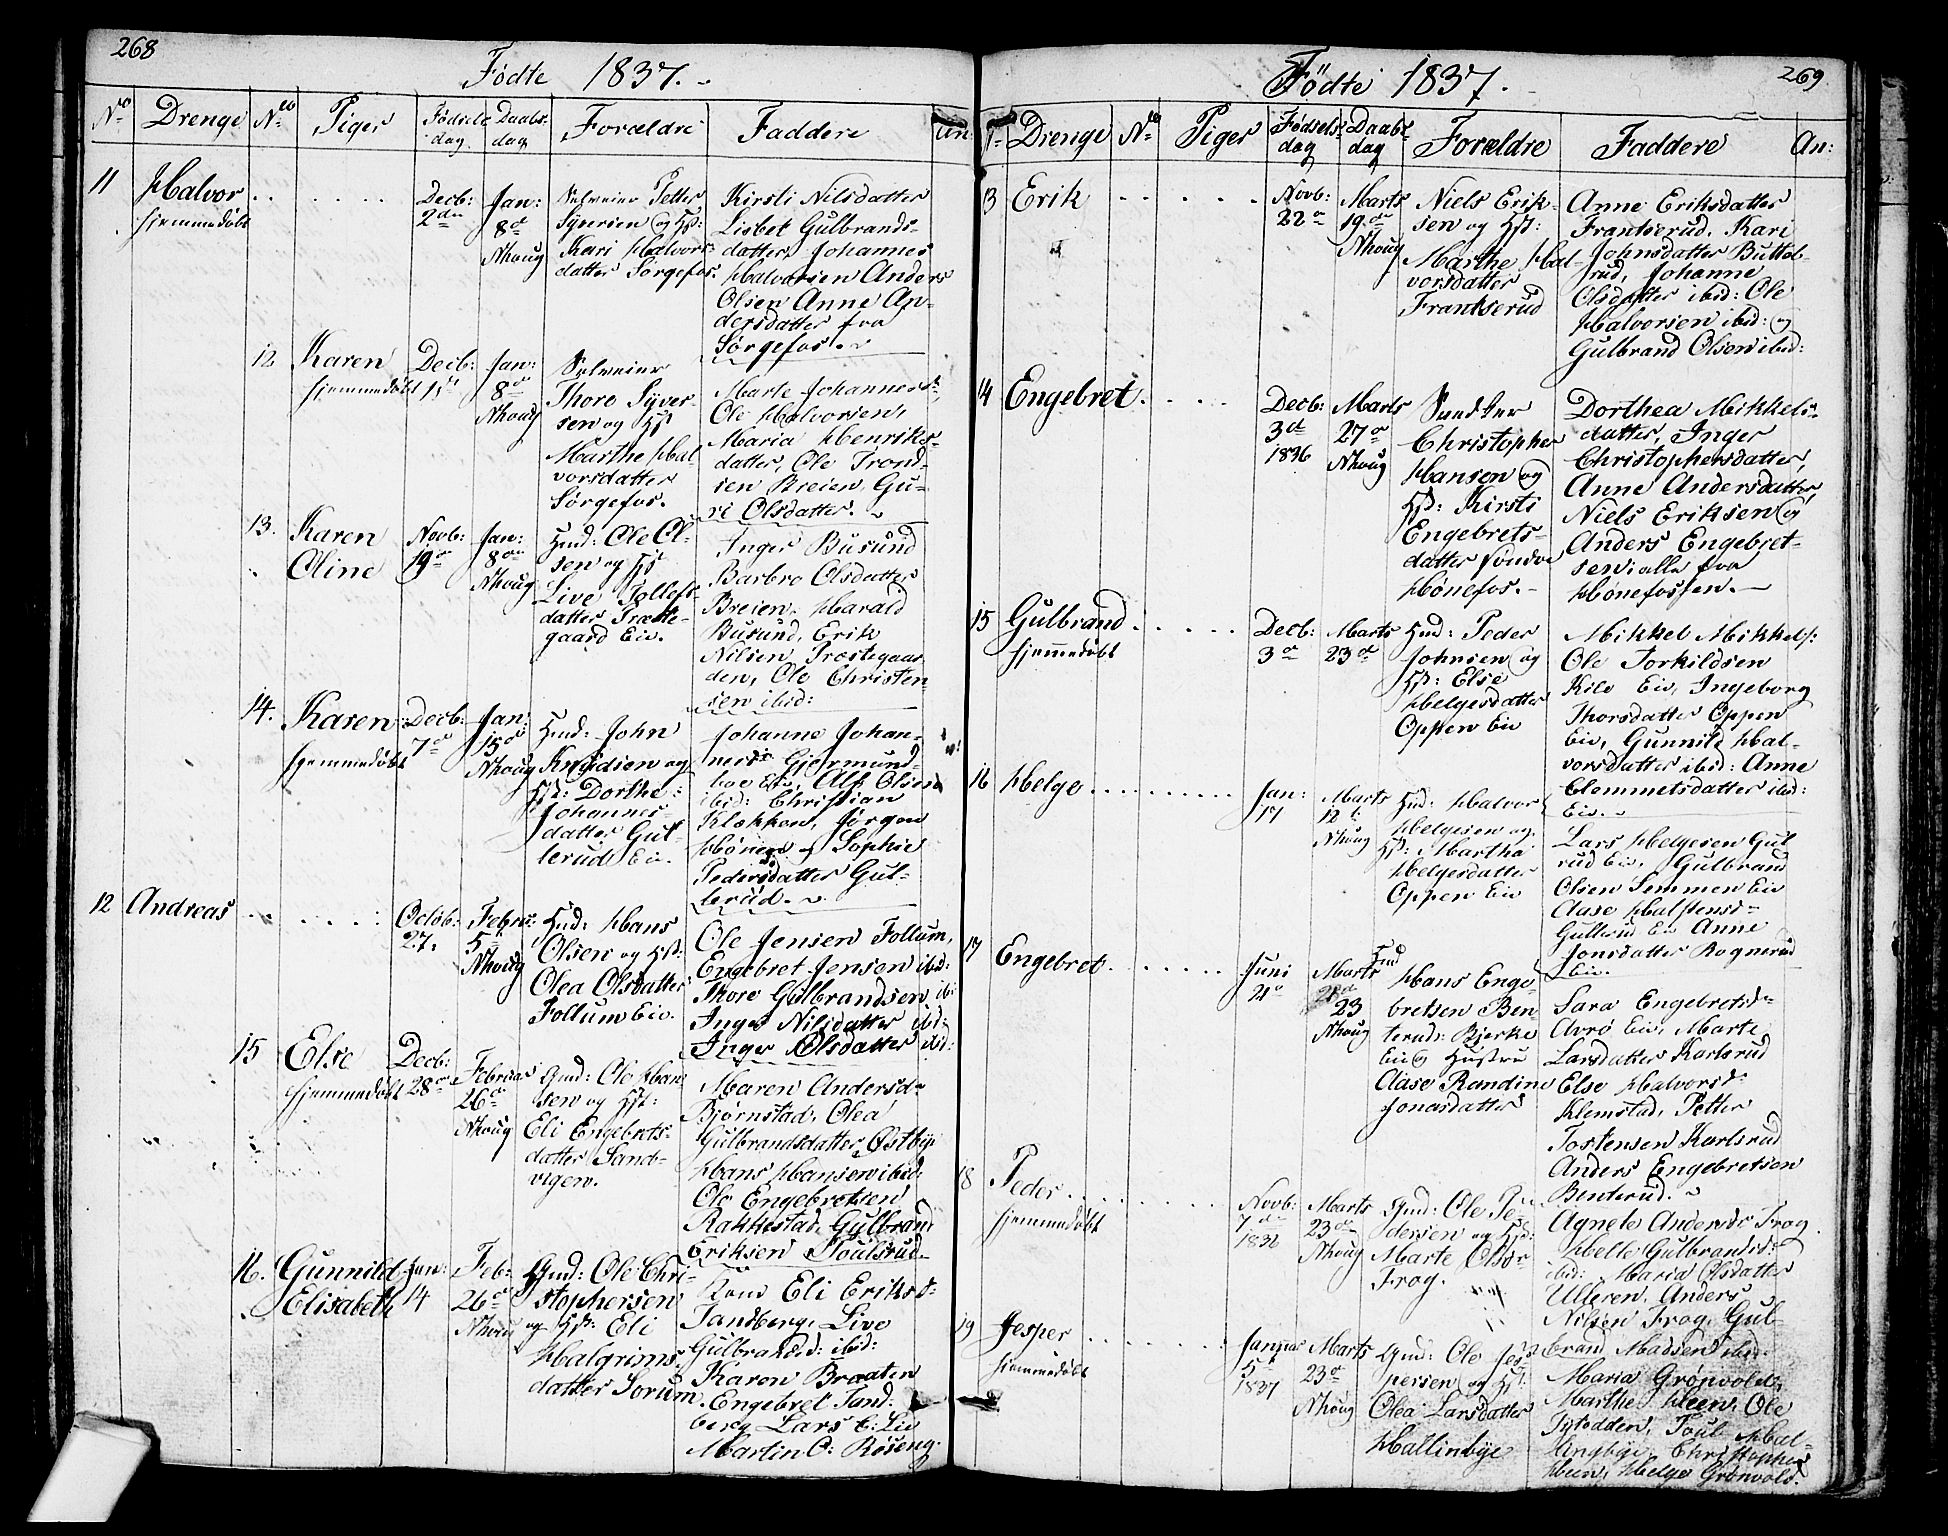 268
Födte 1837.
No Drenge No Piger Födsels dag Daabs dag Forældre Faddere An:
11 Halvor
hjemmedöbt
Decb: 2den
Jan: 8de Nhoug
Selveier Petter
Syversen og Hst:
Kari Halvors-
datter Sörgefos.
Kirsti Nilsdatter
Lisbet Gulbrands-
datter, Johannes
Halvorsen Anders
Olsen Anne An-
dersdatter fra
Sörgefos.
12 Karen
hjemmedöbt
Decb: 15
Jan: 8de Nhoug
Selveier
Thore Syver-
sen og Hst
Marthe Hal-
vorsdatter
Sörgefos.
Marte Johannesd:
Ole Halvorsen,
Maria Henriks-
datter, Ole Trond-
sen Breien, Gu-
ri Olsdatter.
13. Karen
Oline
Novb: 19de
Jan: 8de Nhoug
Hmd: Ole Ol-
sen og Hst
Live Tollefs-
datter Præste-
gaard Eie.
Inger Busund
Barbro Olsdatter
Breien, Harald
Busund, Erik
Nilsen Præstegaar
den, Ole Christen-
sen ibid:
14. Karen
hjemmedöbt
Decb: 7de
Jan: 15de Nhoug
Hmd: John
Knudsen og
Hst: Dorthe
Johannes-
datter Gul-
lerud Eie.
Johanne Johan-
nesd: Gjermund-
boe Eie, Alf Olsen
ibid: Christian
Klækken, Jörgen
Hönen og Sophie
Pedersdatter Gul-
lerud.
12 Andreas
Octob: 27.
Febru: 5te Nhoug
Hmd: Hans
Olsen og Hst:
Olea Olsdatter
Follum Eie.
Ole Jensen Follum,
Engebret Jensen ibid:
Thore Gulbrandsen ib:
Inger Nilsdatter ib:
Inger Olsdatter ibid:
15 Else
hjemmedöbt
Decb: 28de
Februar 26de Nhoug
Hmd: Ole Han
sen og Hst:
Eli Engebrets-
datter Sand-
vigen.
Maren Andersd-
Björnstad, Olea
Gulbrandsdatter Østbye
Hans Hansen ibid:
Ole Engebretsen
Rakkestad, Gulbrand
Eriksen
16. Gunnild
Elisabeth
Jan: 14
Feb: 26de Nhoug
Hmd: Ole Chri-
stophersen
og Hst: Eli
Halgrims
datter Sorum
Kone Eli Eriksd-
Tandberg, Live
Gulbrandsd: ibid:
Karen Braaten
Engebret Tand-
berg Lars E: Lie
Martin O: Röseng.
269
Födte 1837.
Drenge No Piger Födsels dag Daabs dag Forældre Faddere An:
13 Erik
Novb: 22de
Marts 19de Nhoug
Niels Erik-
sen og Hst:
Marthe Hal-
vorsdatter
Frantserud
Anne Eriksdatter
Frantserud, Kari
Johnsdatter Buttel-
rud, Johanne
Olsdatter ibid: Ole
Halvorsen ibid: og
Gulbrand Olsen ibid:
14 Engebret
Decb: 3de 1836
Marts 27de Nhoug
Christopher
Hansen og
Hst: Kirsti
Engebrets-
datter söndre
Hönefos.
Dorthea Mikkels-
datter, Inger
Christophersdatter,
Anne Andersdatter,
Niels Eriksen og
Anders Engebret-
sen alle fra
Hönefossen.
15 Gulbrand
hjemmedöbt
Decb: 3de
Marts 23de
Hmd: Peder
Johnsen og
Hst: Else
Helgesdatter
Oppen Eie
Mikkel Mikkels:
Ole Torkildsen
Kile Eie, Ingeborg
Thorsdatter Oppen
Eie, Gunnild Hal-
vorsdatter ibid: Anne
Clemmetsdatter ibid:
Eie.
16 Helge
Jan: 17
Marts 12te Nhoug
Hmd: Halvor
Helgesen og
Hst: Martha
Helgesdatter
Oppen Eie
Lars Helgesen Gul
rud Eie. Gulbrand
Olsen Semmen Eie
Aase Halstensd-
Gullerud Eie Anne
Jonsdatter Rognerud
Eie.
17 Engebret
Juni 21de
Marts 23 Nhoug
Hmd
Hans Enge-
bretsen Ben-
terud: Bjerke
Eie og Hustru
Aase Randine
Jonasdatter
Sara Engebretsd-
Avrö Eie, Marte
Larsdatter Karlsrud
Else Halvorsd-
Klemstad, Petter
Tostensen Karlsrud
Anders Engebretsen
Benterud.
18 Peder
hjemmedöbt
Novb: 7de 1836
Marts 23de Nhoug
Hmd: Ole Pe-
dersen og Hst:
Marte Olsdr
Frog.
Agnete Andersdr Frog
Helle Gulbrandsd:
ibid: Maria Olsdatter
Ulleren, Anders
Nilsen Frog, Gul-
brand Madsen ibid:
19 Jesper
hjemmedöbt
Januar 5te 1837
Marts 23de Nhoug
Hmd: Ole Jes-
persen og Hst:
Olea Larsdatter
Hallinbye
Maria Grönvold,
Marthe Heen, Ole
Poul Hal-
lingbye, Christopher
Heen, Helge Grönvold.